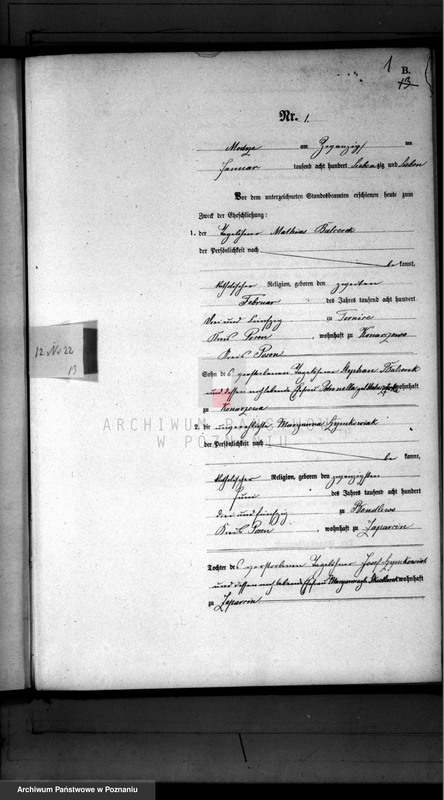 1 B.
13
Nr. 1.
am zwanzigsten
Januar tausend acht hundert sieben zig und sieben
Vor dem unterzeichneten Standesbeamten erschienen heute zum
Zweck der Eheschließung:
1. der Tagelöhner Mathias
der Persönlichkeit nach
be kannt,
katholischer Religion, geboren den zweiten
Februar des Jahres tausend acht hundert
drei und fünfzig zu
Kreis Posen, wohnhaft zu Konarzewo
Kreis Posen
Sohn des verstorbenen Tagelöhner Stephan
und dessen noch lebende Ehefrau Petronella wohnhaft
zu Konarzewo
2. die unverehelichte Maryanna Szymkowiak
der Persönlichkeit nach
be kannt,
katholischer Religion, geboren den zwanzigsten
Juni des Jahres tausend acht hundert
drei und fünfzig zu
Kreis Posen, wohnhaft zu
Tochter des verstorbenen Tagelöhner Josef Szymkowiak
und dessen noch lebende Ehefrau wohnhaft
zu
12 No 22
13
ARCHIWUM PAŃSTWOWE
W POZNANIU
Archiwum Państwowe w Poznaniu